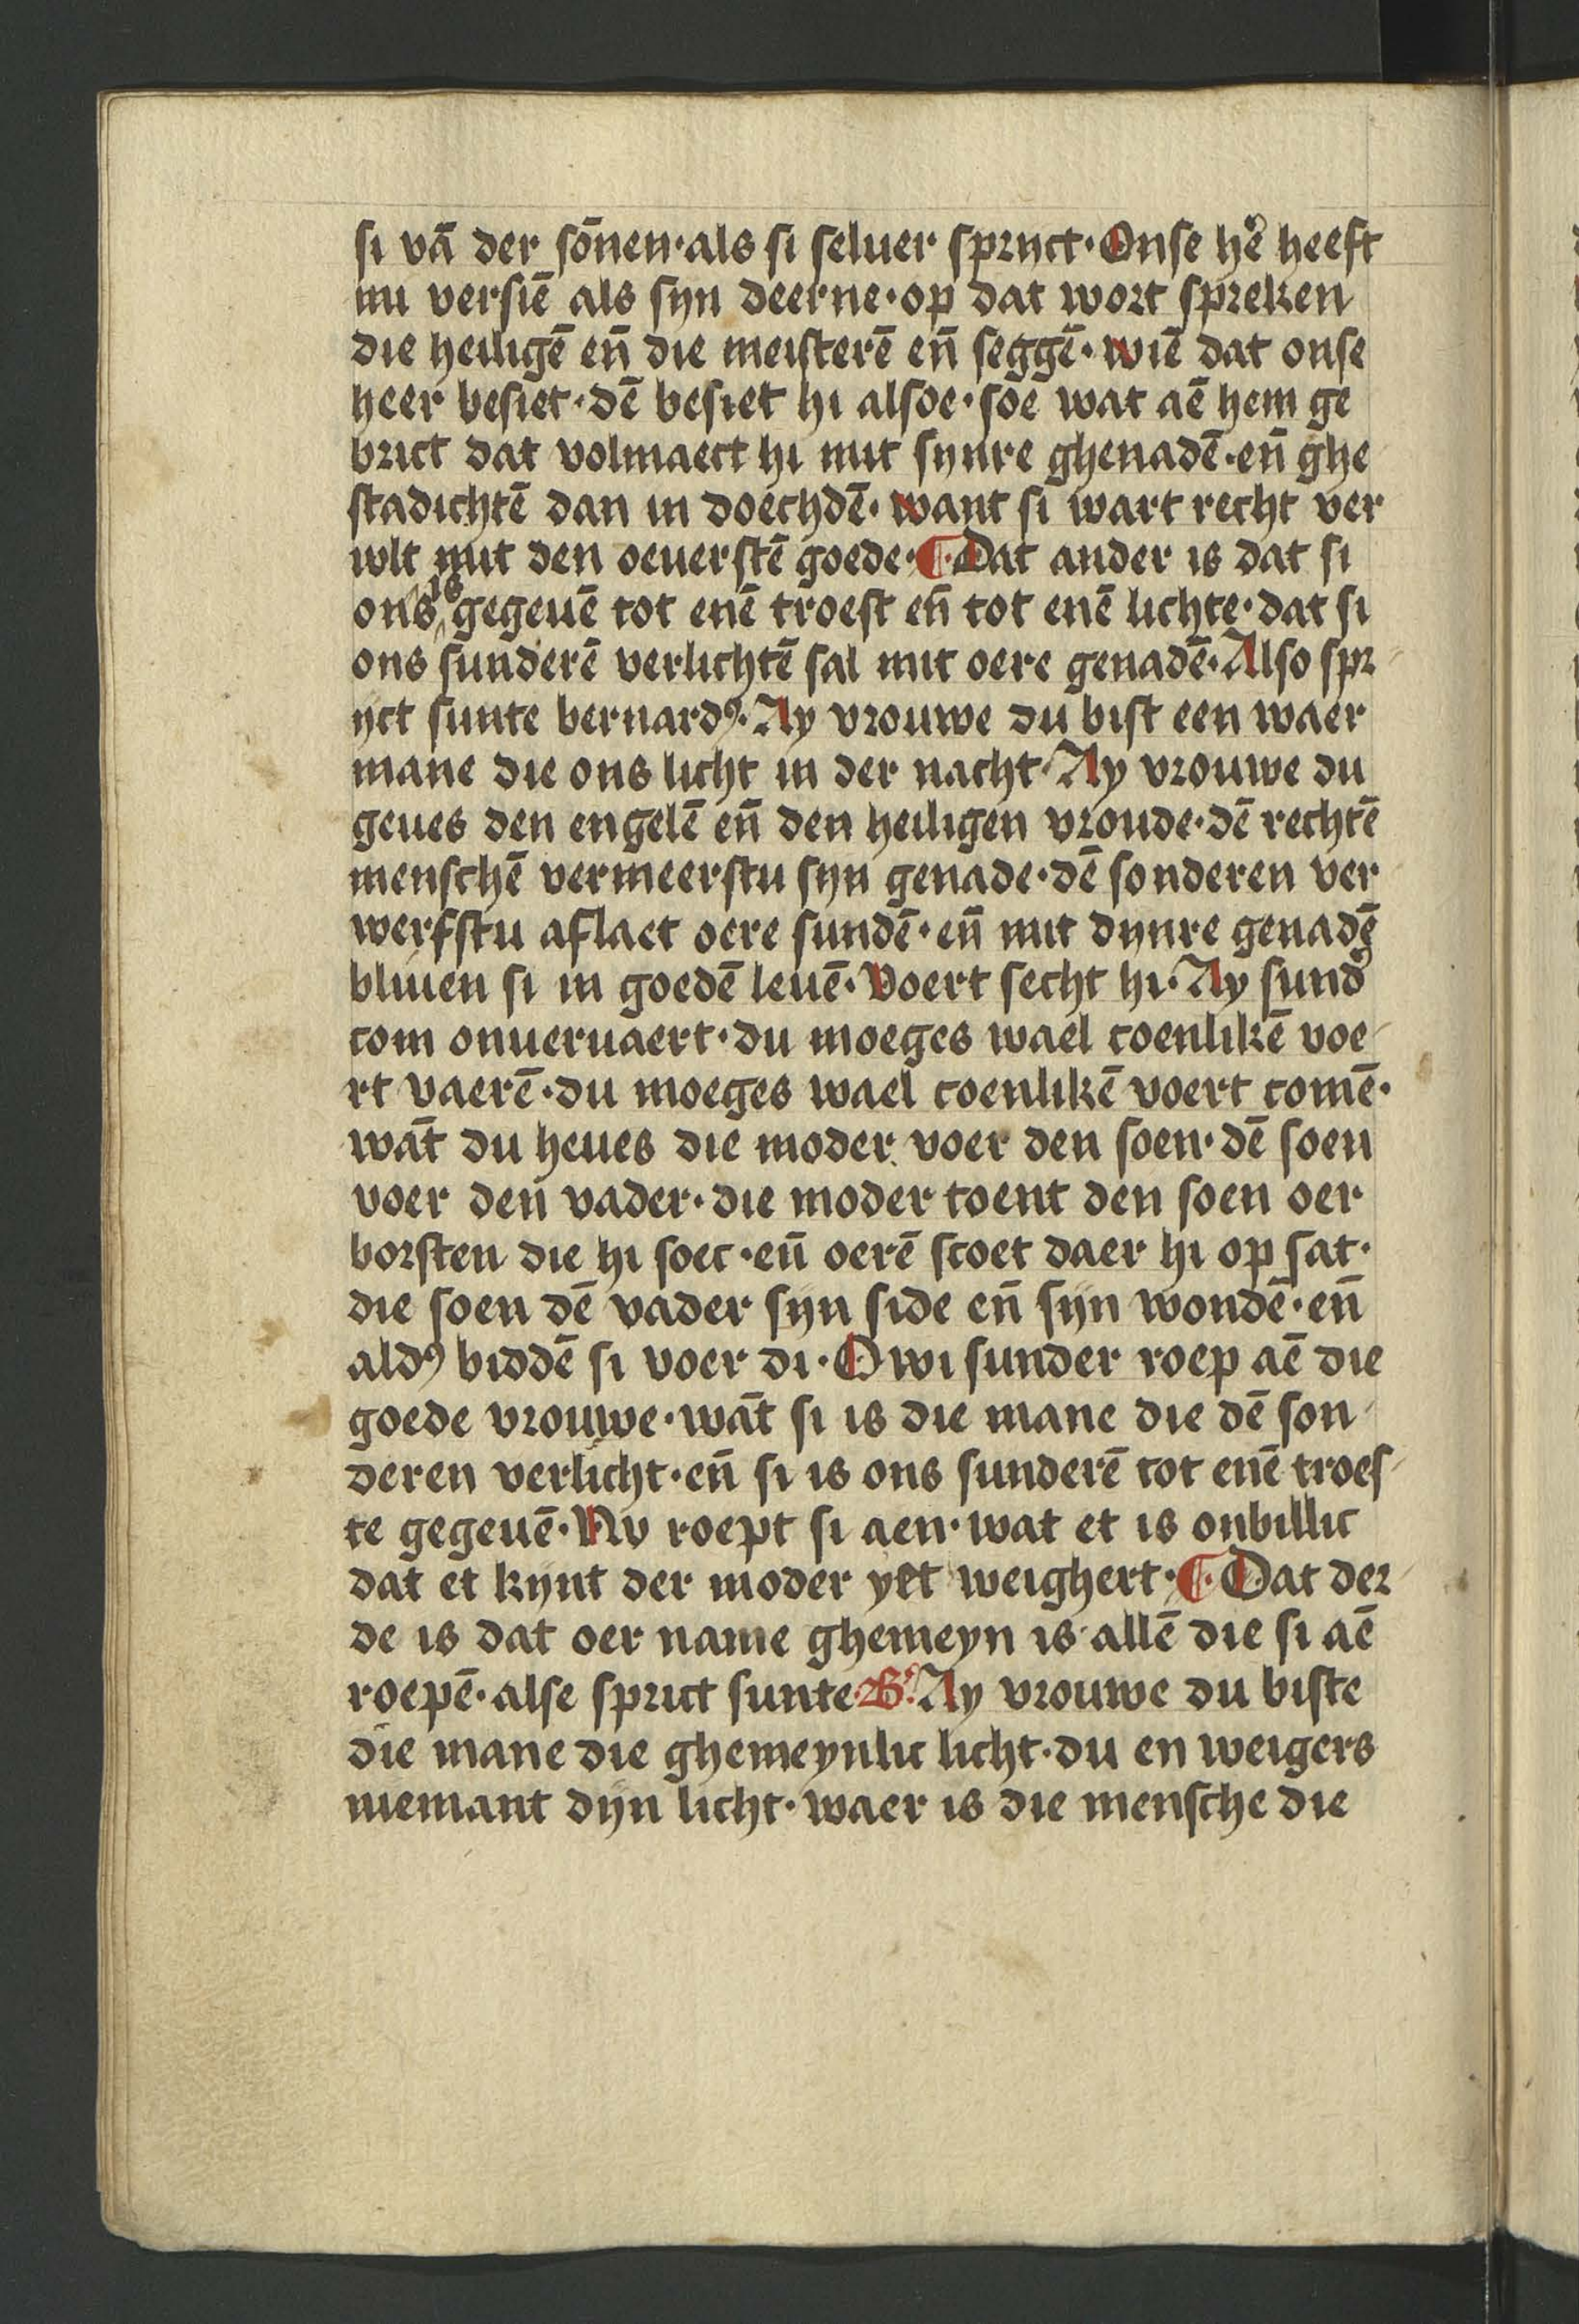 si vā der sōnen·als si seluer sprijct·Onse hē heeft
mi versiē als sijn deerne·op dat wort spreken
die heiligē eñ die meisterē eñ seggē·wiē dat onse
heer besiet·dē besiet hi alsoe·soe wat aē hem ge
brict dat volmaect hi mit sijnre ghenadē·eñ ghe
stadichtē dan in doechdē·want si wart recht ver
wlt mit den oeuerstē goede·¶·Dat ander is dat si
ons is gegeuē tot enē troest eñ tot enē lichte·dat si
ons sunderē verlichtē sal mit oere genadē·Also spr
ijct sunte bernardꝰ·Ay vrouwe du bist een waer
mane die ons licht in der nacht·Ay vrouwe du
geues den engelē eñ den heiligen vroude·dē rechtē
menschē vermeerstu sijn genade·dē sonderen ver
werfstu aflaet oere sundē·eñ mit dijnre genadē
bliuen si in goedē leuē·Voert secht hi·Ay sund̾
com onueruaert·du moeges wael coenlikē voe
rt vaerē·du moeges wael coenlikē voert comē·
wāt du heues die moder voer den soen·dē soen
voer den vader·die moder toent den soen oer
borsten die hi soec·eñ oerē scoet daer hi op sat·
die soen dē vader sijn side eñ sijn wondē·eñ
aldꝰ biddē si voer di·O wi sunder roep aē die
goede vrouwe·wāt si is die mane die dē son
deren verlicht·eñ si is ons sunderē tot enē troes
te gegeuē·Nv roept si aen·wat et is onbillic
dat et kijnt der moder yet weighert·¶·Dat der
de is dat oer name ghemeyn is allē die si aē
roepē·alse sprict sunte·B·Ay vrouwe du biste
die mane die ghemeynlic licht·du en weigers
niemant dijn licht·waer is die mensche die